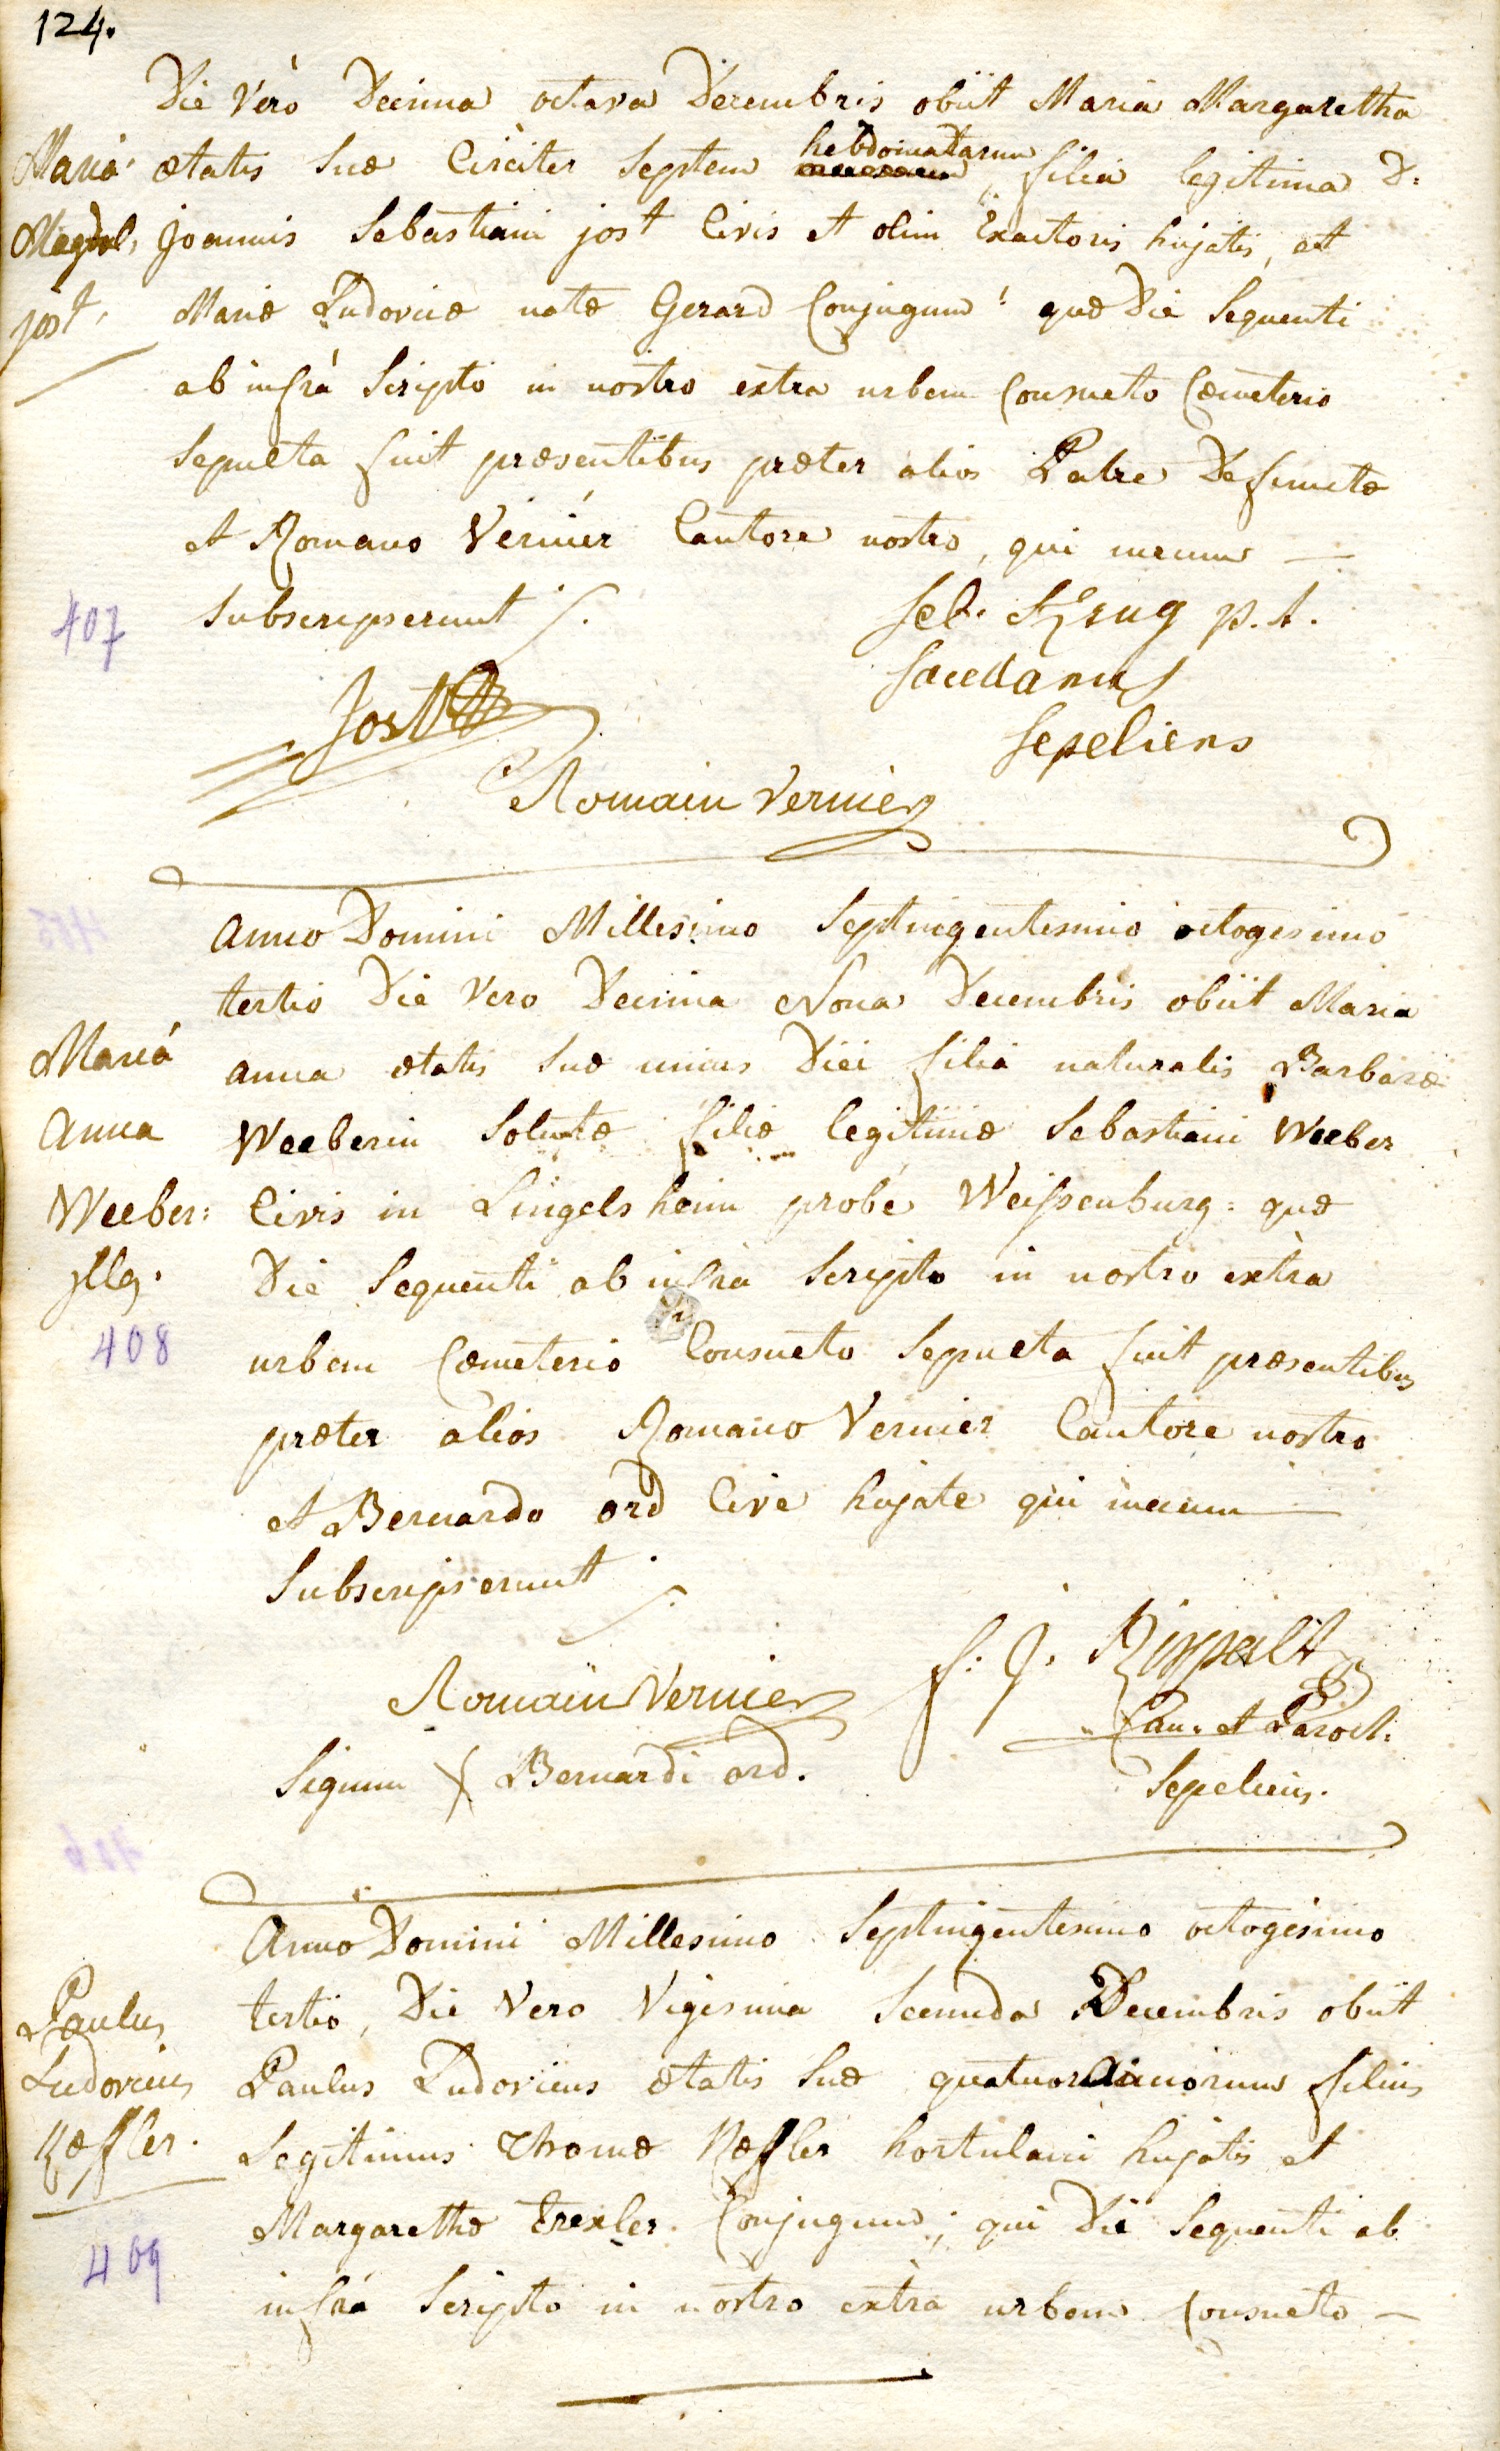 124.
Die Verò Decima octava Decembris obiit Maria Margaretha
ætatis Suæ Circiter Septem hebdomadarum filia legitima D:
Joannis Sebastiani jost Civis et olim Exactoris hujatis, et
Mariæ Ludovicæ natæ Gerard Conjugum! quæ Die Sequenti
ab infrà Scripto in nostro extra urbem Consueto Cæmeterio
Sepulta fuit præsentibus præter alios Patre Defunctæ
et Romano Vernier Cantore nostro, qui mecum —
Subscripserunt ./.
Maria
Magdal,
jost,
407
Seb. Krug p. t.
Sacellanus
Sepeliens
Jost
Romain Vernier
Anno Domini Millesimo Septingentesimo octogesimo
tertio Die Vero Decima Nona Decembris obiit Maria
anna ætatis Suæ unius Diei filia naturalis Barbaræ
Weeberin Solutæ filiæ legitimæ Sebastiani Weeber
Civis in Lingelsheim probe Weissenburg: quæ
Die Sequenti ab infrà Scripto in nostro extra
urbem Cæmeterio Consueto Sepulta fuit præsentibus
præter alios Romano Vernier Cantore nostro
et Bernardo ord Cive hujate qui mecum —
Subscripserunt ./.
Mariá
Anna
Weeber:
jlleg.
408
Romain Vernier
f: J. Rippelt
Can. et Paroch.
Sepeliens.
Signum X Bernardi ord.
Anno Domini Millesimo Septingentesimo octogesimo
tertio, Die Vero Vigesima Secunda Decembris obiit
Paulus Ludovicus ætatis Suæ quatuor annorum filius
Legitimus Thomæ Kæffler hortulani hujatis et
Margarethæ Trexler Conjugum; qui Die Sequenti ab
infrà Scripto in nostro extra urbem Consueto —
Paulus
Ludovicus
Kæffler.
409